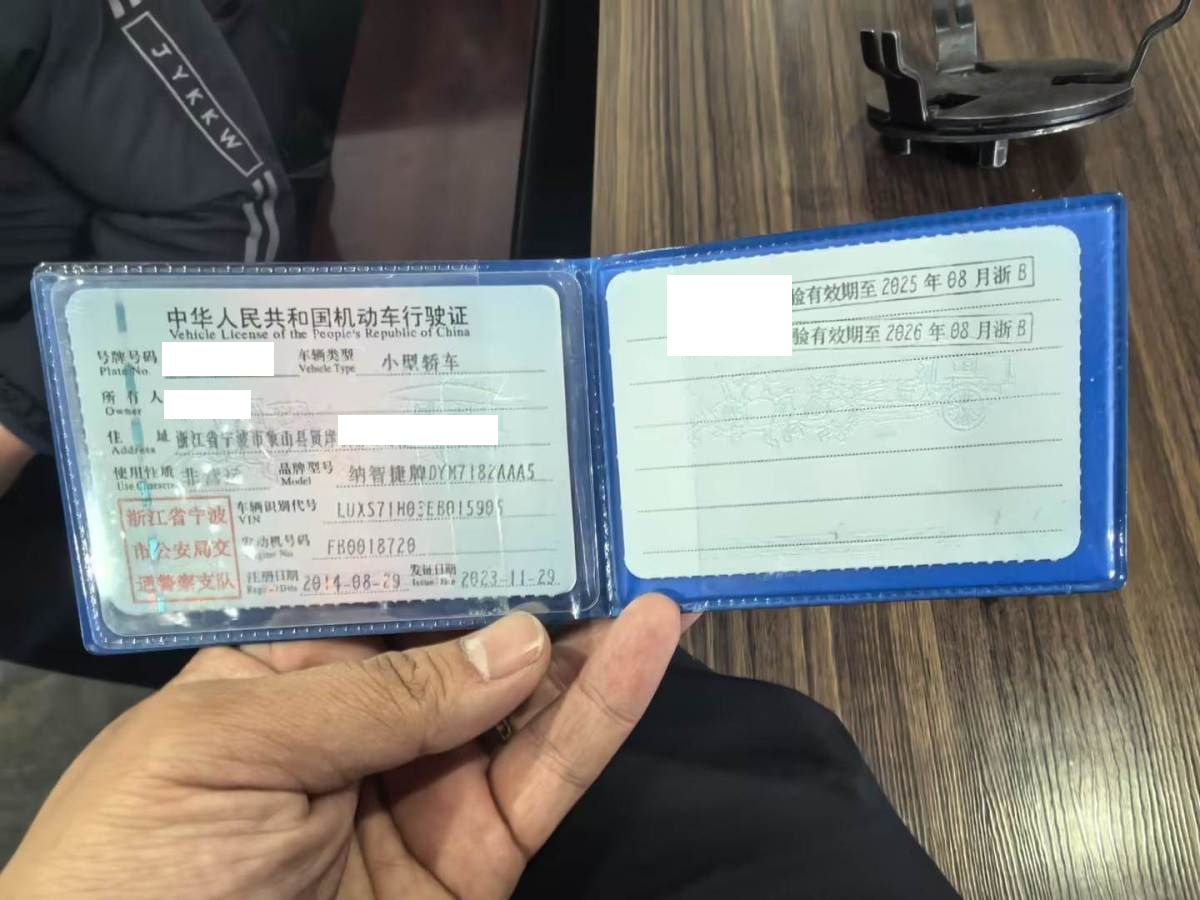 JYKKW
中华人民共和国机动车行驶证
Vehicle License of the People's Republic of China
号牌号码
Plate No.
车辆类型 小型轿车
Vehicle Type
所有人
Owner
住址 浙江省宁波市象山县贤庠
Address
使用性质 非营运 品牌型号 纳智捷牌DYM7182AAA5
Use Character Model
浙江省宁波
市公安局交
通警察支队
车辆识别代号 LUXS71H03EB015905
VIN
发动机号码 FB0018720
Engine No.
注册日期 2014-08-29 发证日期 2023-11-29
Register Date Issue Date
验有效期至2025年08月浙B
验有效期至2026年08月浙B